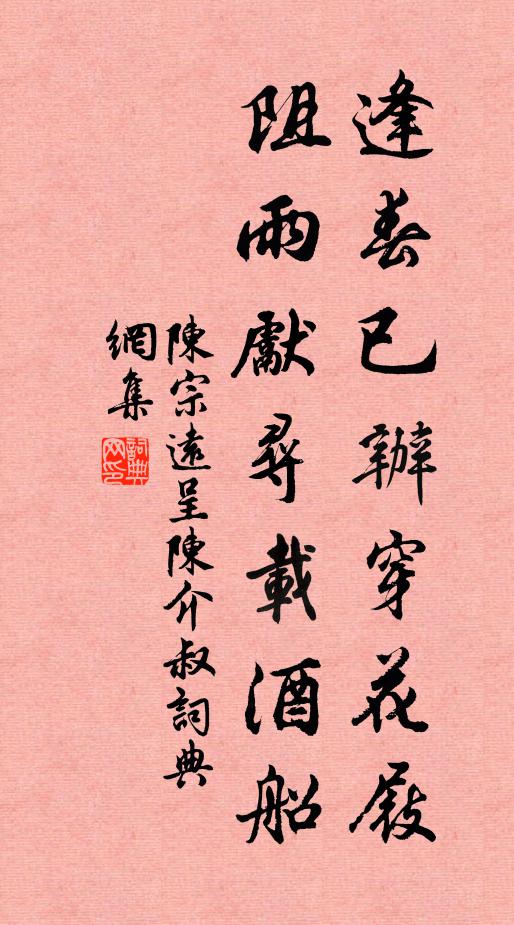 逢春已辦穿花屐
阻雨獻尋載酒船
陳宗遠呈陳介叔詞典
網集
詞典
网印